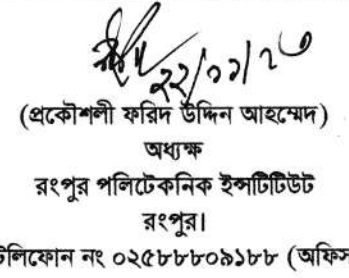 ২২/০১/২৩
(প্রকৌশলী ফরিদ উদ্দিন আহম্মেদ)
অধ্যক্ষ
রংপুর পলিটেকনিক ইন্সটিটিউট
রংপুর।
টেলিফোন নং ০২৫৮৮৮০৯১৮৮ (অফিস